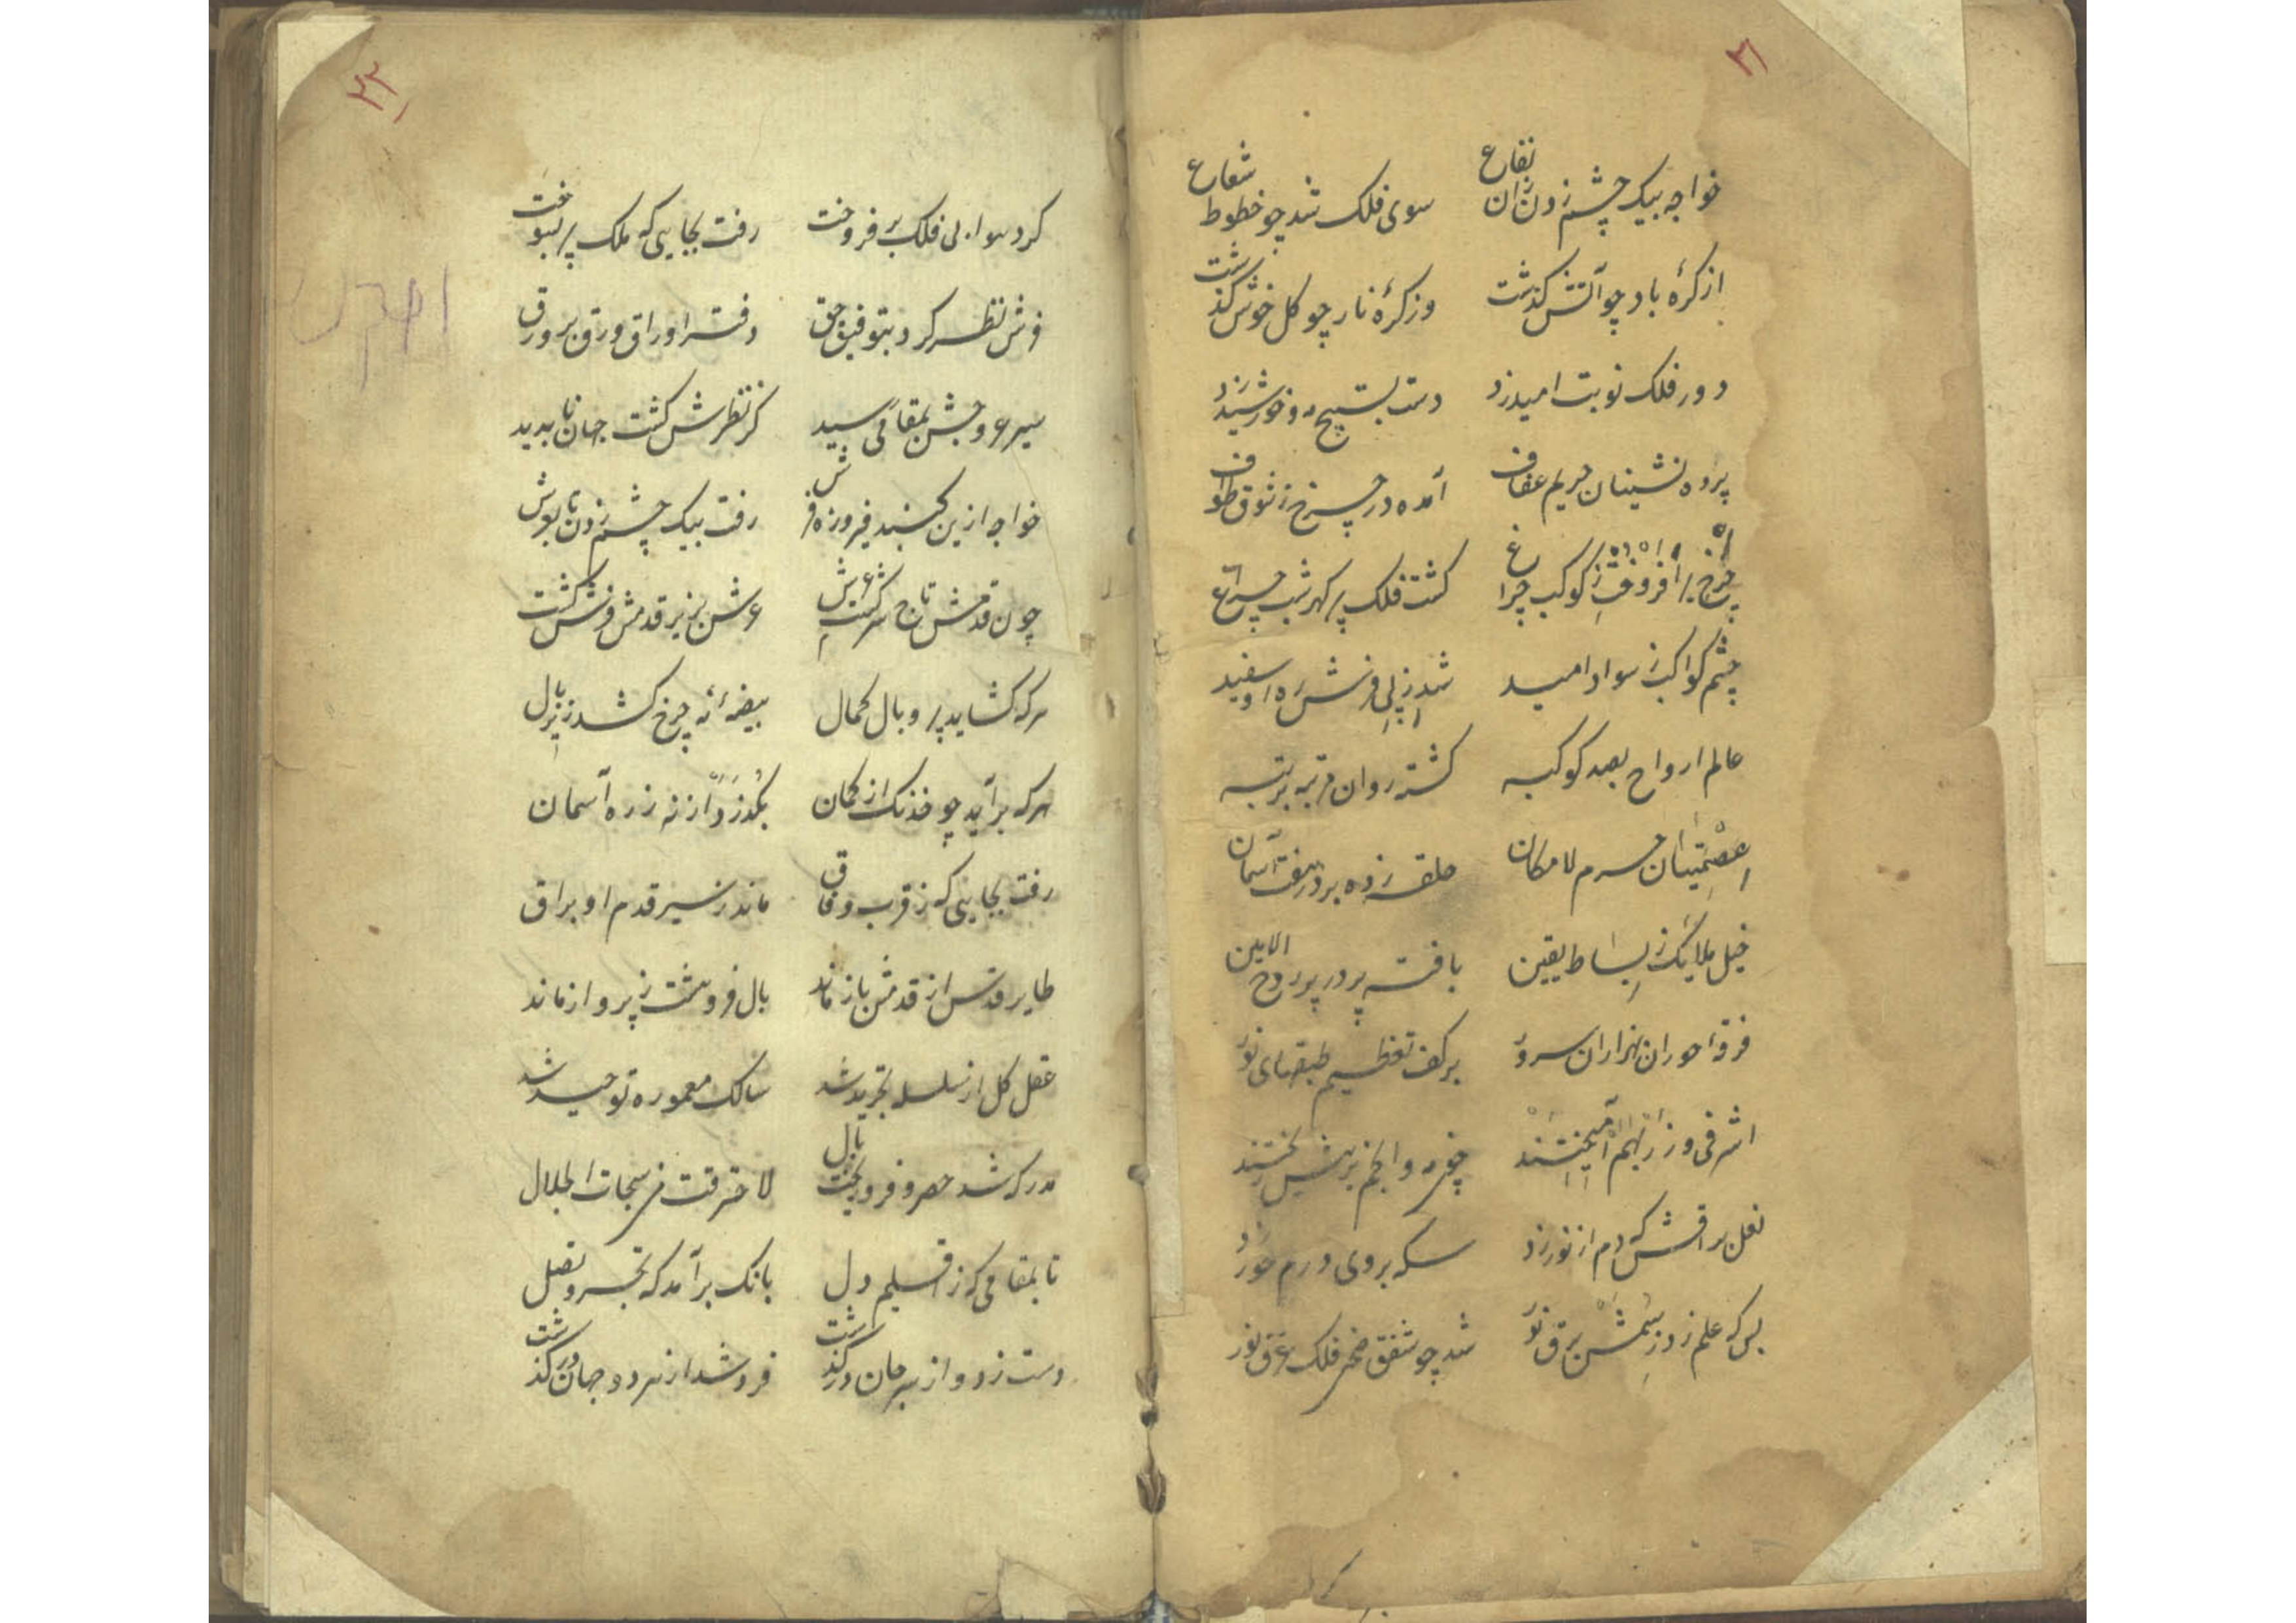 ۲۱
خواجه بیک چشم زدن زان بقاع سوی فلک شد چو خطوط شعاع
از کرهٔ باد چو آتش گذشت وز کرهٔ نار چو گل خوش گذشت
دور فلک نوبت امید زد دست بتسبیح مه و خورشید زد
پرده نشینان حریم عفاف آمده در چرخ ز شوق طواف
چرخ برافروخته ز کوکب چراغ گشت فلک پر گهر شب چراغ
چشم کواکب ز سواد امید شد ز پی فرش ره او سفید
عالم ارواح بصد کوکبه گشته روان مرتبه بر مرتبه
عصمتیان حرم لامکان حلقه زده بر در هفت آسمان
خیل ملائک ز بساط یقین بافته پر در پر روح الامین
فرقهٔ حوران بهزاران سرور بر کف تعظیم طبقهای نور
اشرفی و زر بهم آمیختند چون مه و انجم برهش ریختند
نعل براقش که دم از نور زد سکه بروی درم خور زد
بس که علم زد ز سمش برق نور شد چو شفق صحن فلک غرق نور
۲۲
کرد سوار بی فلک بر فروخت رفت بجایی که ملک پر بسوخت
فرش نظر کرد بتوفیق حق دفتر اوراق ورق بر ورق
سیر عروجش بمقامی رسید کز نظرش گشت جهان ناپدید
خواجه ازین گنبد فیروزه فرش رفت بیک چشم زدن تا بعرش
چون قدمش تاج سر عرش گشت عرش بزیر قدمش فرش گشت
هر که گشاید پر و بال کمال بیضهٔ نه چرخ کشد زیر بال
هر که برآید چو خدنگ از کمان بگذرد از نه زره آسمان
رفت بجایی که ز قرب وفاق ماند ز سیر قدم او براق
طایر قدس از قدمش باز ماند بال فروهشت ز پرواز ماند
عقل کل از سلسله تجرید شد سالک معموره توحید شد
مدرکه شد حصر و فرو ریخت بال لاحترقت من سبحات الجلال
تا بمقامی که ز اقلیم دل بانگ برآمد که تجرد تصل
دست زد و از سر جان درگذشت فرد شد از هر دو جهان درگذشت